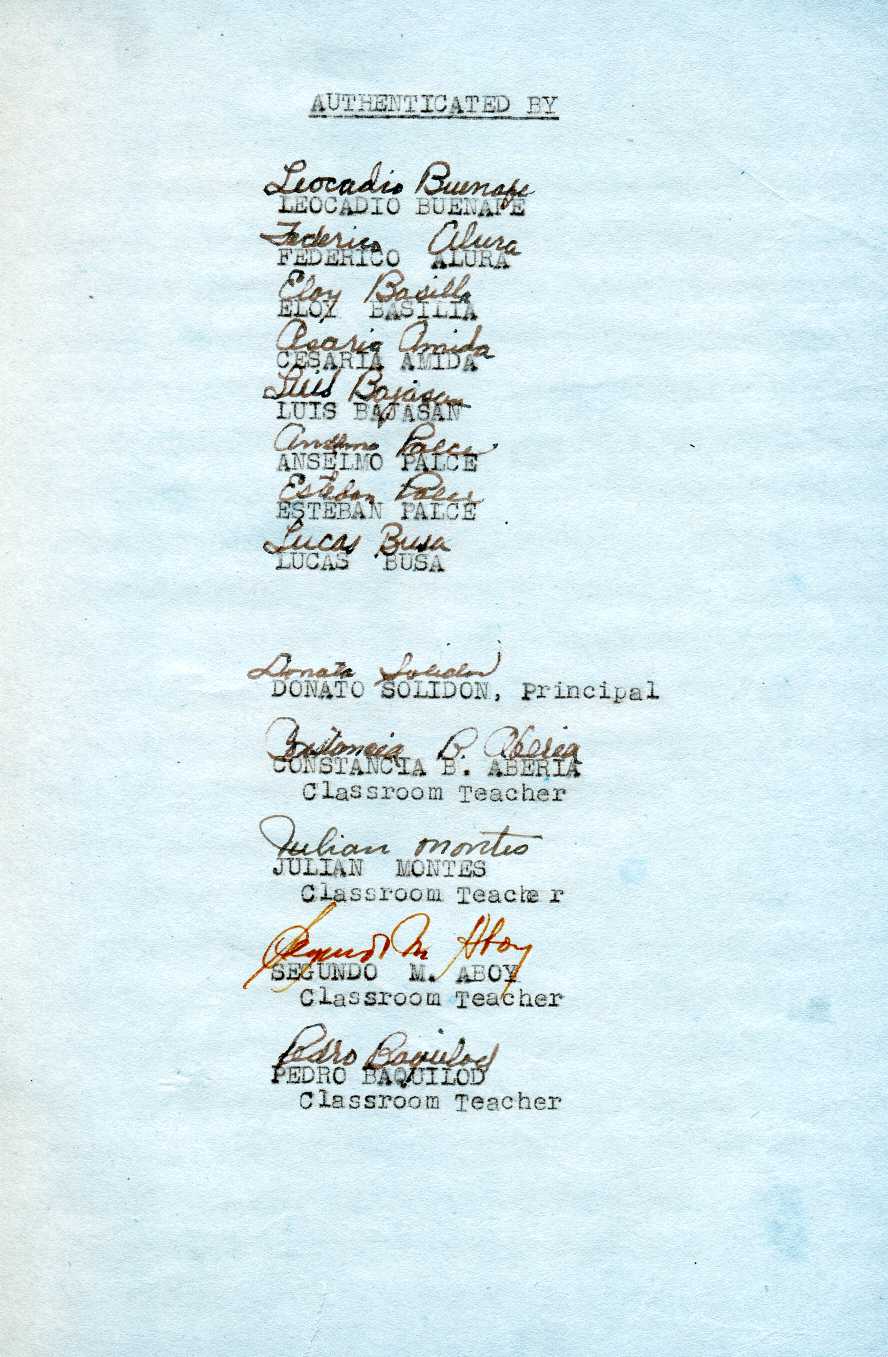 AUTHENTICATED BY
Leocadio Buenafe
LEOCADIO BUENAFE
Federico Alura
FEDERICO ALURA
Eloy Basilla
ELOY BASILIA
Cesaria Amida
CESARIA AMIDA
Luis Bajasan
LUIS BAJASAN
Anselmo Palce
ANSELMO PALCE
Esteban Palce
ESTEBAN PALCE
Lucas Busa
LUCAS BUSA
Donato Solidon
DONATO SOLIDON, Principal
Constancia B. Aberia
CONSTANCIA B. ABERIA
Classroom Teacher
Julian Montes
JULIAN MONTES
Classroom Teacher
Segundo M. Aboy
SEGUNDO M. ABOY
Classroom Teacher
Pedro Baquilod
PEDRO BAQUILOD
Classroom Teacher